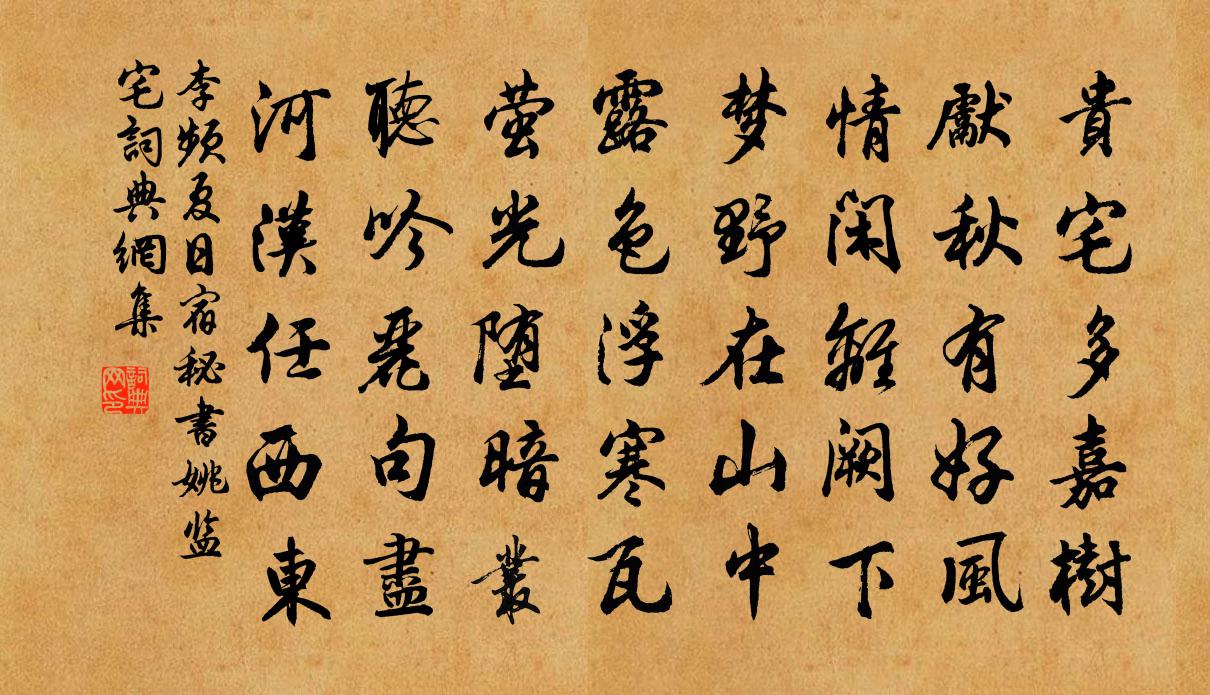 貴宅多嘉樹
獻秋有好風
情閑離闕下
梦野在山中
露色浮寒瓦
萤光堕暗叢
聽吟麗句盡
河漢任西東
李頻夏日宿秘書姚监
宅詞典網集
詞典
网印